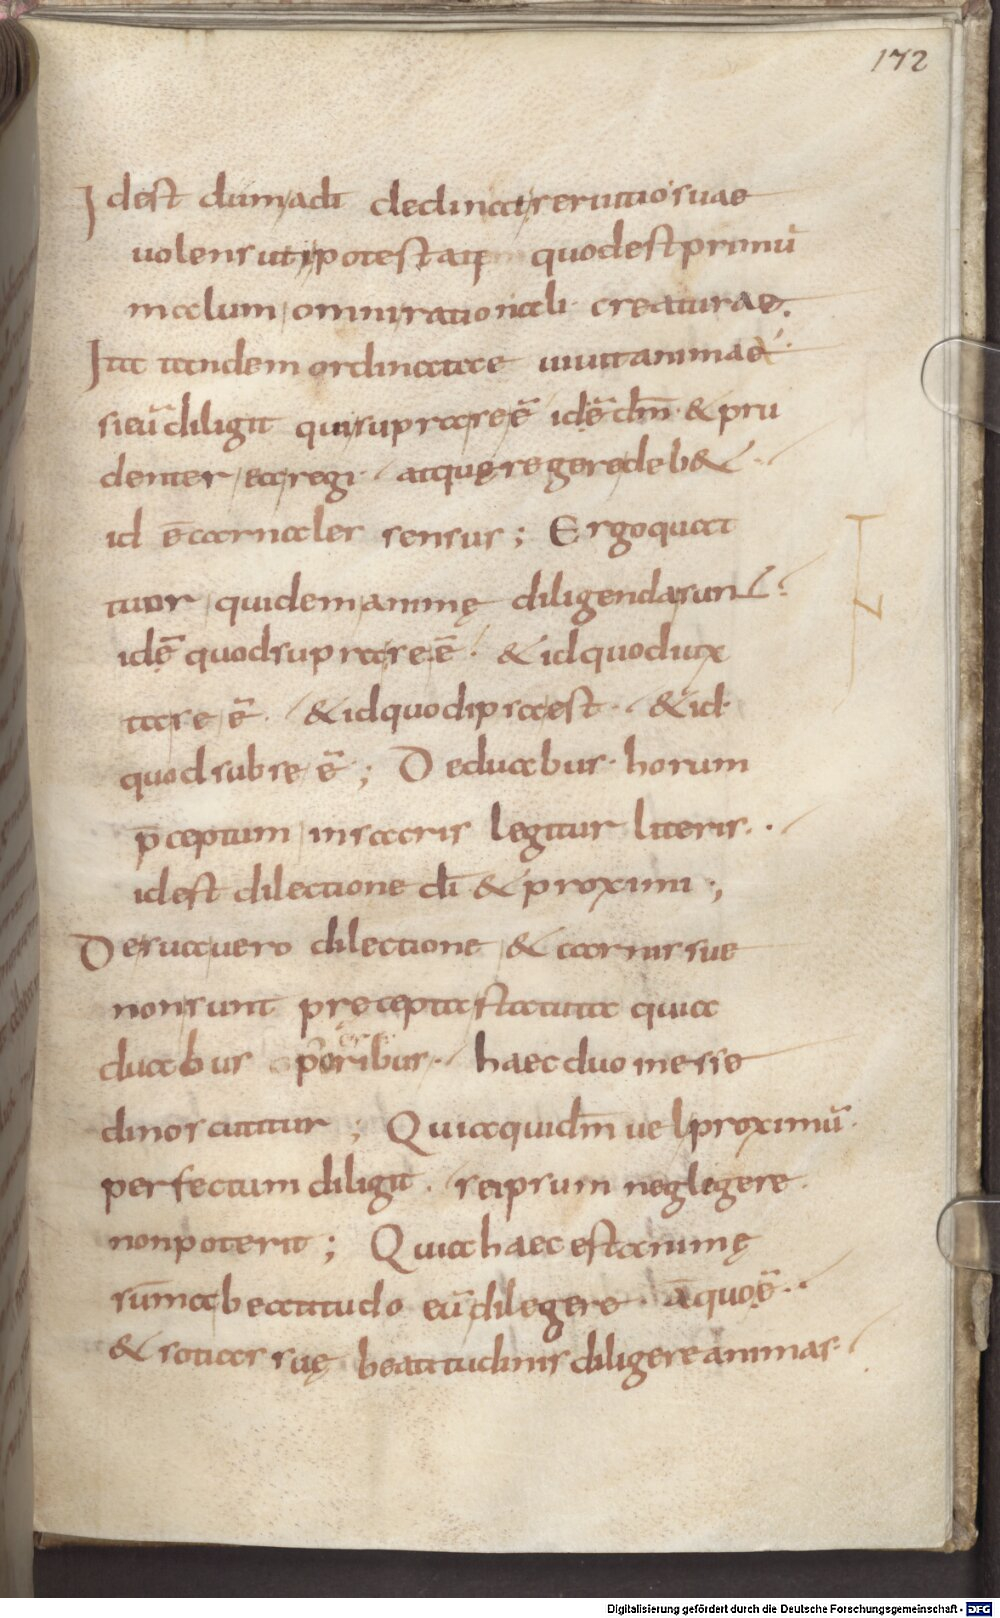 172
Idest dum, adi declinat, seruitio suae
uolens uti, potestatę quod est primū
malum, omni, rationali· creaturae.
Ita tandem ordinatae uiuit animae·
si eū diligit qui supra, se ē̃ id ē̃ dm̄· & pru
denter, ea, regi· atque, regere, deb&·
id ē̄ carnales sensus; Ergo quat
tuor, quidem, animę diligenda, sunt·
id ē̃ quod supra, se, ē̄· & id quod iux
ta, se ē̃· & id quod ipsa est· & id·
quod sub se ē̃; De duabus· horum
p̄ceptum, in sacris legitur literis··
id est dilectione dī & proximi·;
De sua, uero dilectione & carnis sue
non, sunt pręcepta statuta quia
duabus p̄oribus· haec duo inesse
dinoscuntur; Quia qui dm̄ uel, proximū·
perfectum diligit· se ipsum neglegere·
non poterit; Quia haec est animę
sūma beatitudo eū dilegere· a quo ē̃··
& socias suę beatitudinis diligere animas·
Digitalisierung gefördert durch die Deutsche Forschungsgemeinschaft - DFG